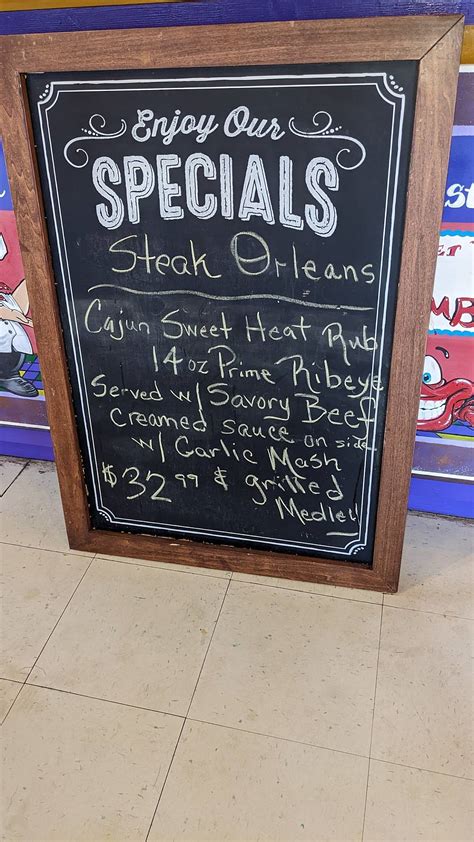 Enjoy Our
SPECIALS
Steak Orleans
Cajun Sweet Heat Rub
14oz Prime Ribeye
Served w/ Savory Beef
Creamed sauce on side
w/ Garlic Mash
$32.99 & grilled
Medley